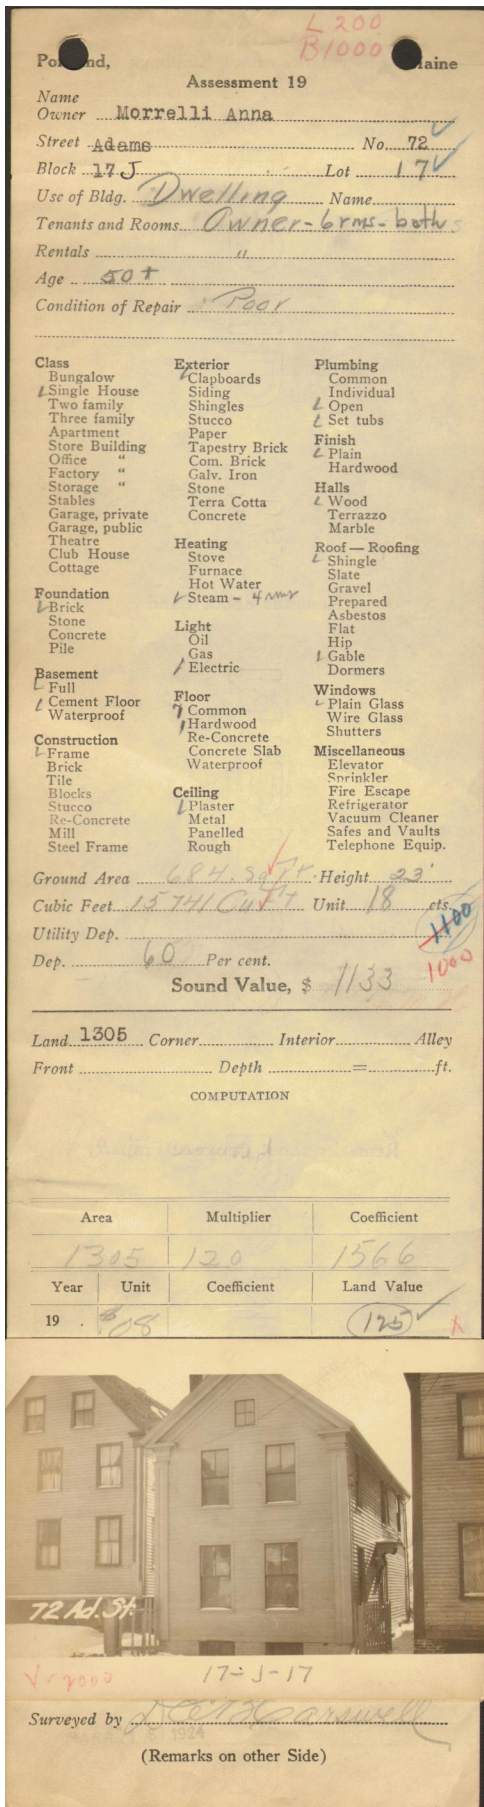 L 200
B 1000
Portland, Maine
Assessment 19
Name
Owner Morrelli Anna
Street Adams No. 72
Block 17 J Lot 17
Use of Bldg. Dwelling Name
Tenants and Rooms Owner - 6 rms - bath
Rentals "
Age 50+
Condition of Repair Poor
Class
Bungalow
Single House
Two family
Three family
Apartment
Store Building
Office "
Factory "
Storage "
Stables
Garage, private
Garage, public
Theatre
Club House
Cottage
Foundation
Brick
Stone
Concrete
Pile
Basement
Full
Cement Floor
Waterproof
Construction
Frame
Brick
Tile
Blocks
Stucco
Re-Concrete
Mill
Steel Frame
Exterior
Clapboards
Siding
Shingles
Stucco
Paper
Tapestry Brick
Com. Brick
Galv. Iron
Stone
Terra Cotta
Concrete
Heating
Stove
Furnace
Hot Water
Steam - 4 rms
Light
Oil
Gas
Electric
Floor
Common
Hardwood
Re-Concrete
Concrete Slab
Waterproof
Ceiling
Plaster
Metal
Panelled
Rough
Plumbing
Common
Individual
Open
Set tubs
Finish
Plain
Hardwood
Halls
Wood
Terrazzo
Marble
Roof — Roofing
Shingle
Slate
Gravel
Prepared
Asbestos
Flat
Hip
Gable
Dormers
Windows
Plain Glass
Wire Glass
Shutters
Miscellaneous
Elevator
Sprinkler
Fire Escape
Refrigerator
Vacuum Cleaner
Safes and Vaults
Telephone Equip.
Ground Area 684. Sq Ft. Height 23'
Cubic Feet 15741 Cu Ft Unit 18 cts.
Utility Dep. 1100
Dep. 60 Per cent. 1000
Sound Value, $ 1133
Land 1305 Corner Interior Alley
Front Depth = ft.
COMPUTATION
Area Multiplier Coefficient
1305 120 1566
Year Unit Coefficient Land Value
19 . $08 125
72 Ad. St.
V-2000 17-J-17
Surveyed by
1924
(Remarks on other Side)